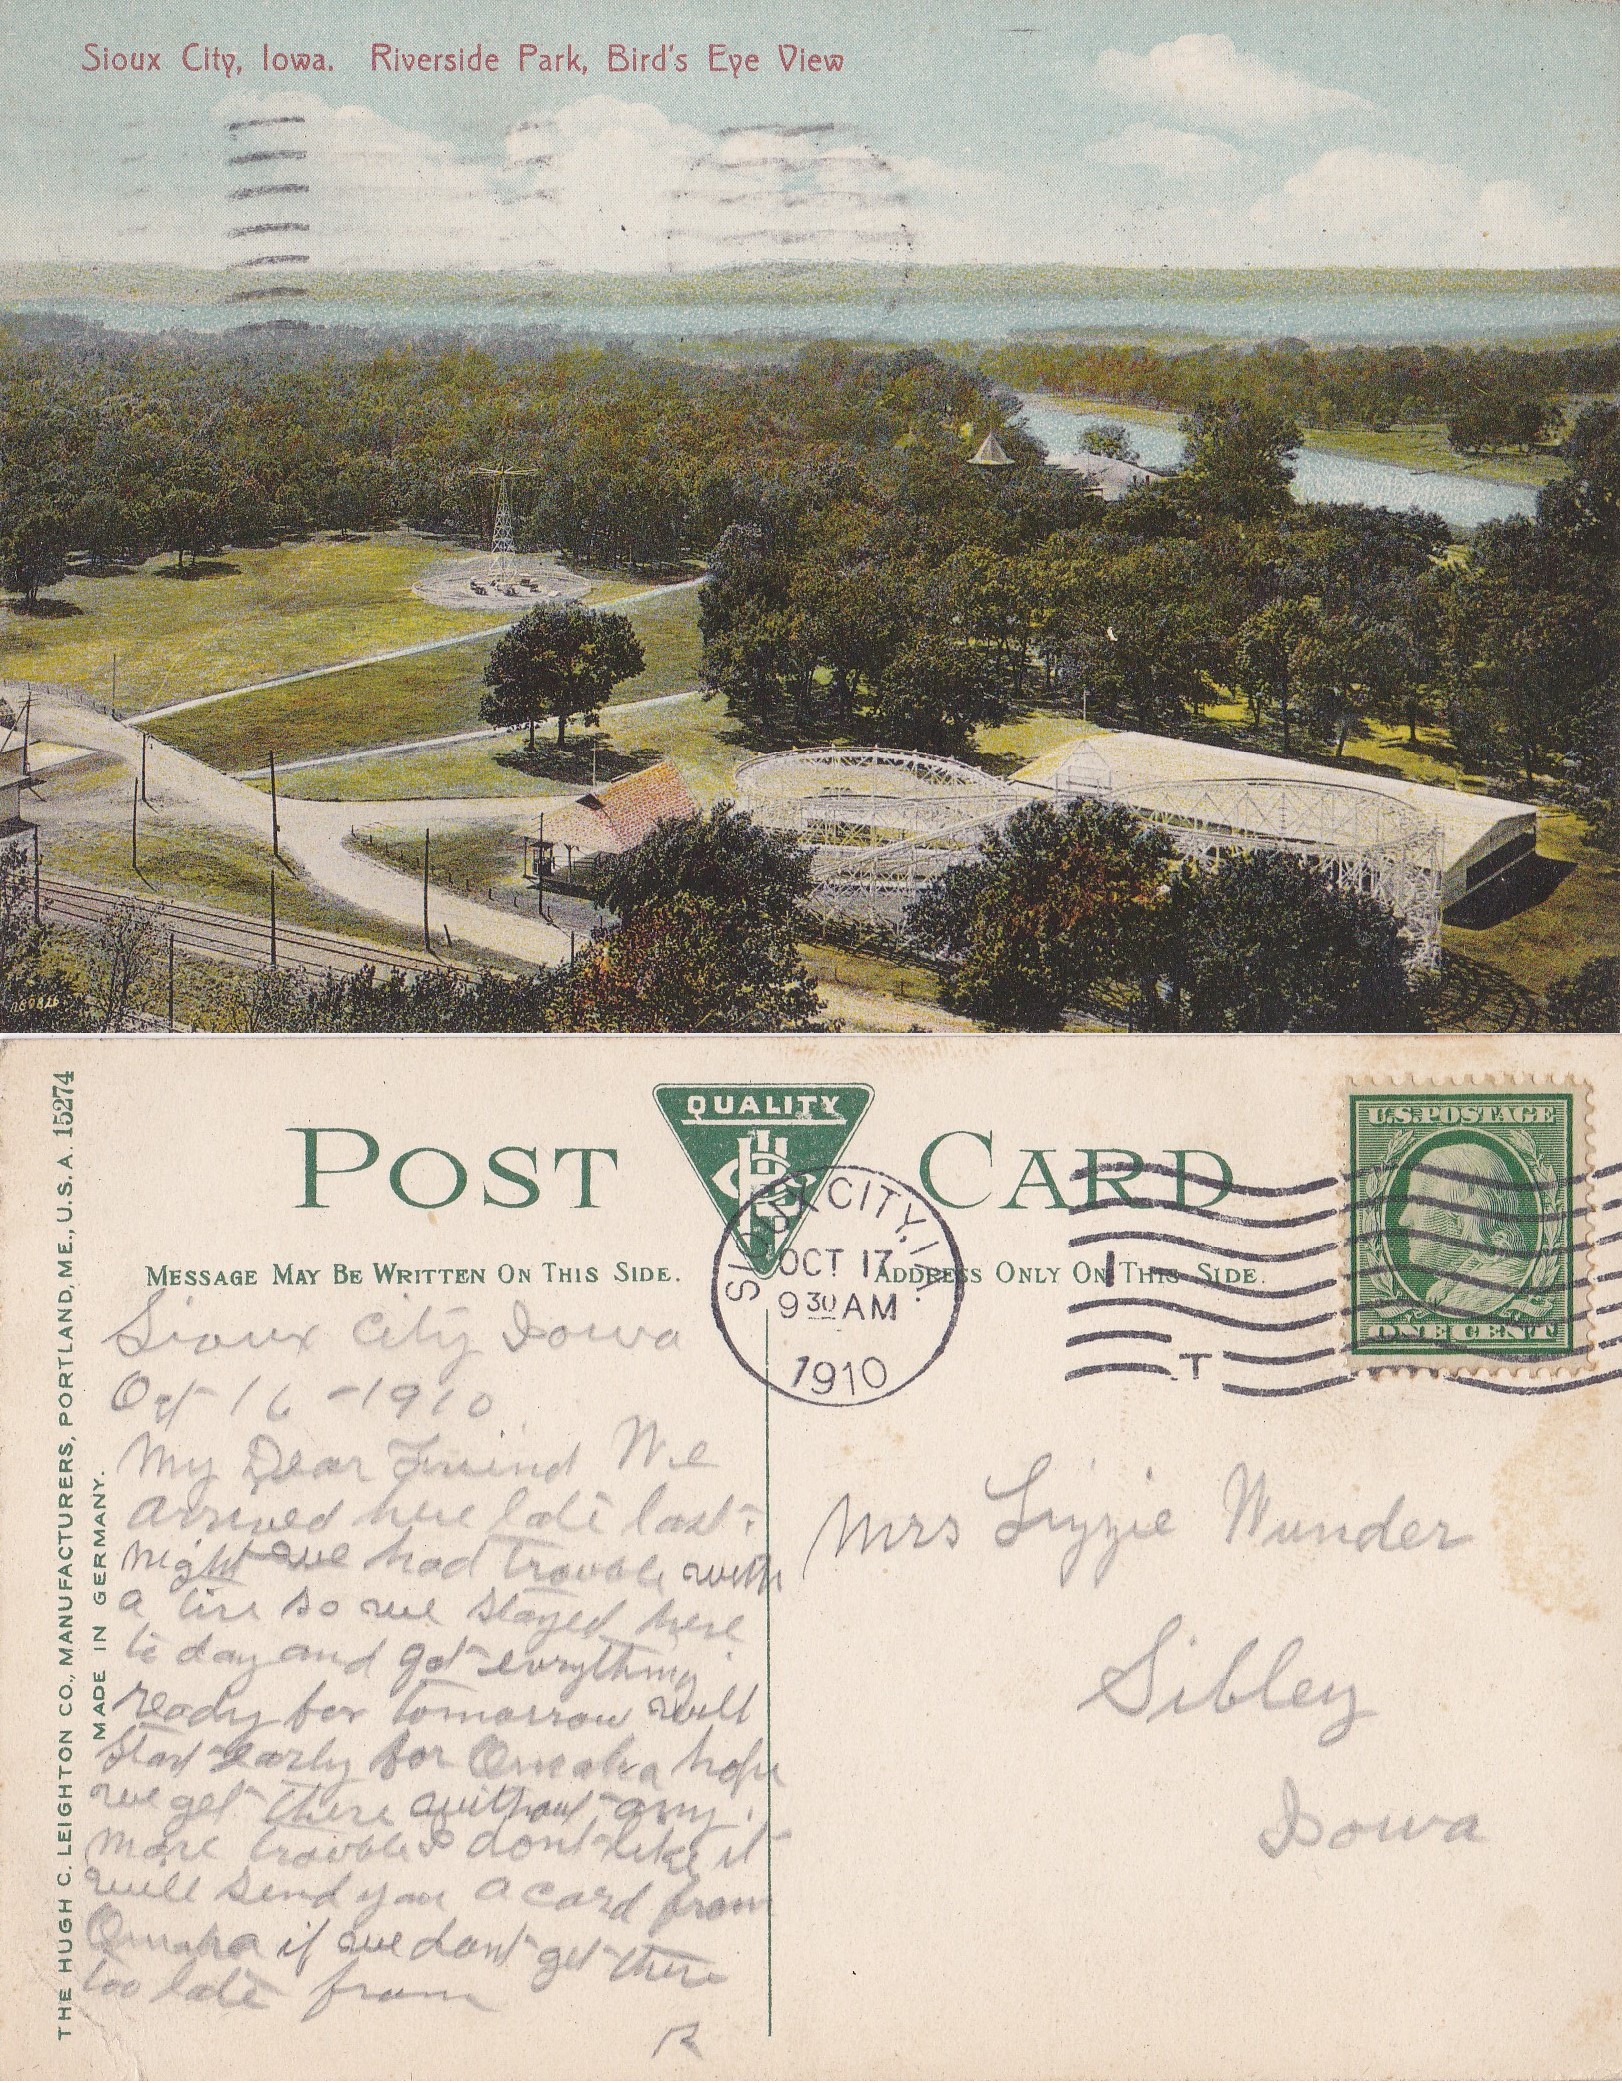 Sioux City, Iowa. Riverside Park, Bird's Eye View
THE HUGH C. LEIGHTON CO., MANUFACTURERS, PORTLAND, ME., U.S.A. 15274
MADE IN GERMANY.
POST CARD
QUALITY
MESSAGE MAY BE WRITTEN ON THIS SIDE.
ADDRESS ONLY ON THIS SIDE.
SIOUX CITY, IA.
OCT 17
9 30 AM
1910
1
T
U.S. POSTAGE
ONE CENT
Sioux City Iowa
Oct 16 - 1910
My Dear Friend We
arrived here late last
night we had trouble with
a tire so we stayed here
to day and got evrything
ready for tomorrow will
start early for Omaha hope
we get there without any
more trouble I dont like it
will send you a card from
Omaha if we dont get there
too late from
R
Mrs Lizzie Wunder
Sibley
Iowa